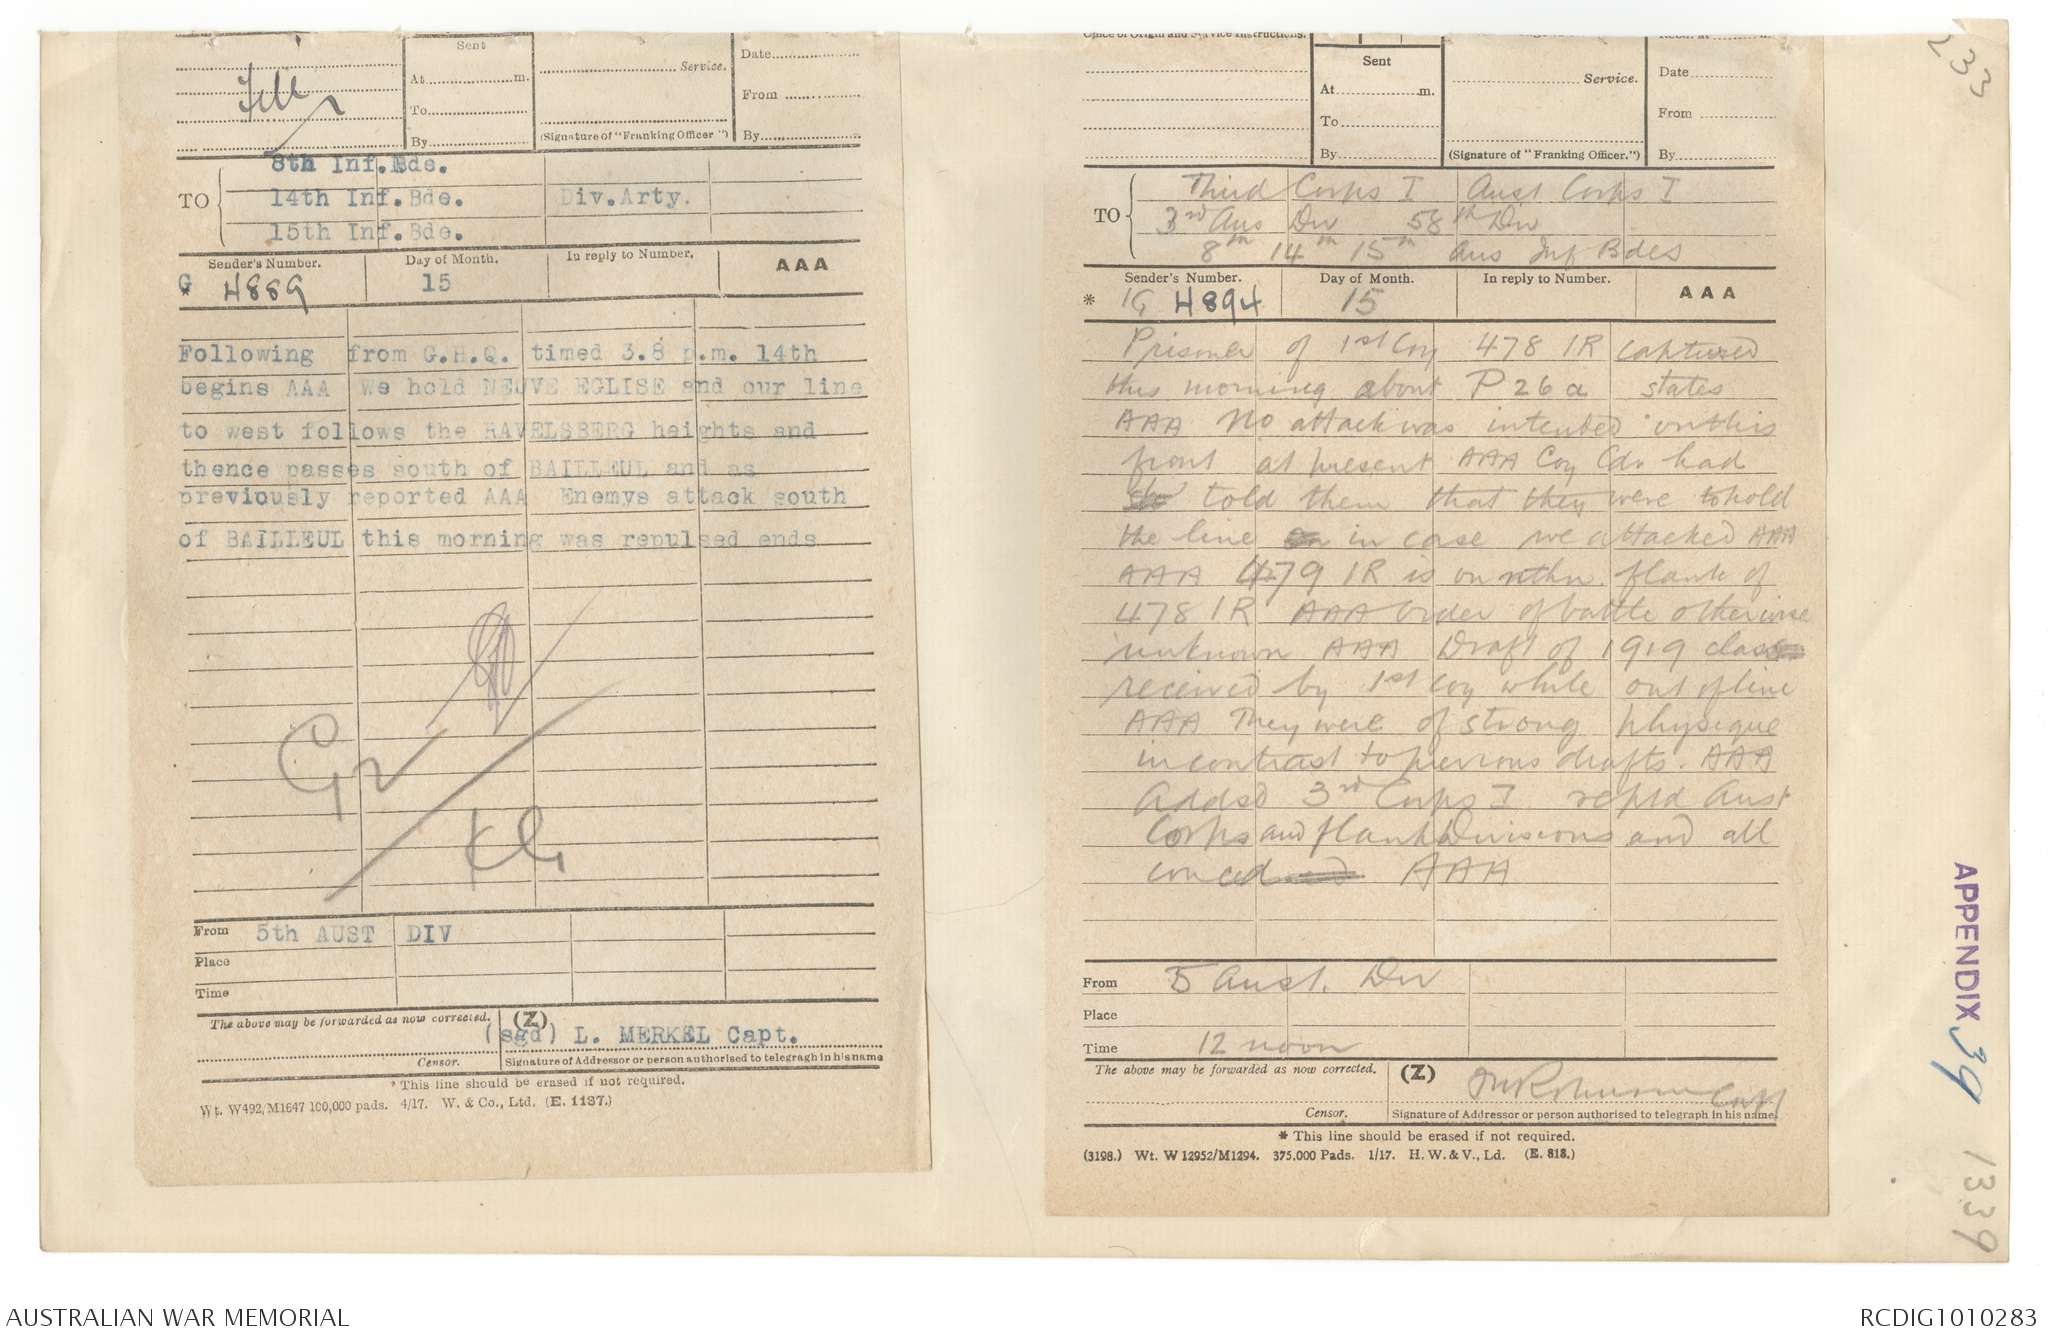 File
Sent
At....m.
To....
By....
....Service.
(Signature of "Franking Officer")
Date....
From ....
By....
TO
8th Inf.Bde.
14th Inf.Bde. Div.Arty.
15th Inf.Bde.
Sender's Number. Day of Month. In reply to Number. AAA
* G 4889 15
Following from G.H.Q. timed 3.8 p.m. 14th
begins AAA We hold NEUVE EGLISE and our line
to west follows the RAVELSBERG heights and
thence passes south of BAILLEUL and as
previously reported AAA Enemys attack south
of BAILLEUL this morning was repulsed ends
From 5th AUST DIV
Place
Time
The above may be forwarded as now corrected. (Z)
(sgd) L. MERKEL Capt.
Censor. Signature of Addressor or person authorised to telegragh in his name
* This line should be erased if not required.
Wt. W492/M1647 100,000 pads. 4/17. W. & Co., Ltd. (E. 1187.)
Office of Origin and Service Instructions.
Sent
At....m.
To....
By....
....Service.
(Signature of "Franking Officer.")
Date....
From ....
By....
TO
Third Corps I Aust Corps I
3rd Aus Div 58th Div
8th 14th 15th Aus Inf Bdes
Sender's Number. Day of Month. In reply to Number. AAA
* IG 4894 15
Prisoner of 1st Coy 478 IR captured
this morning about P26a states
AAA No attack was intended on this
front at present AAA Coy Cdr had
told them that they were to hold
the line in case we attacked AAA
AAA 479 IR is on nthn. flank of
478 IR AAA Order of battle otherwise
unknown AAA Draft of 1919 class
received by 1st Coy while out of line
AAA They were of strong physique
in contrast to previous drafts. AAA
Addsd 3rd Corps I reptd Aust
Corps and flank Divisions and all
conced AAA
From 5 Aust. Div
Place
Time 12 noon
The above may be forwarded as now corrected. (Z)
Capt
Censor. Signature of Addressor or person authorised to telegraph in his name
* This line should be erased if not required.
(3198.) Wt. W 12952/M1294. 375,000 Pads. 1/17. H. W. & V., Ld. (E. 818.)
233
APPENDIX 39
1339
AUSTRALIAN WAR MEMORIAL
RCDIG1010283